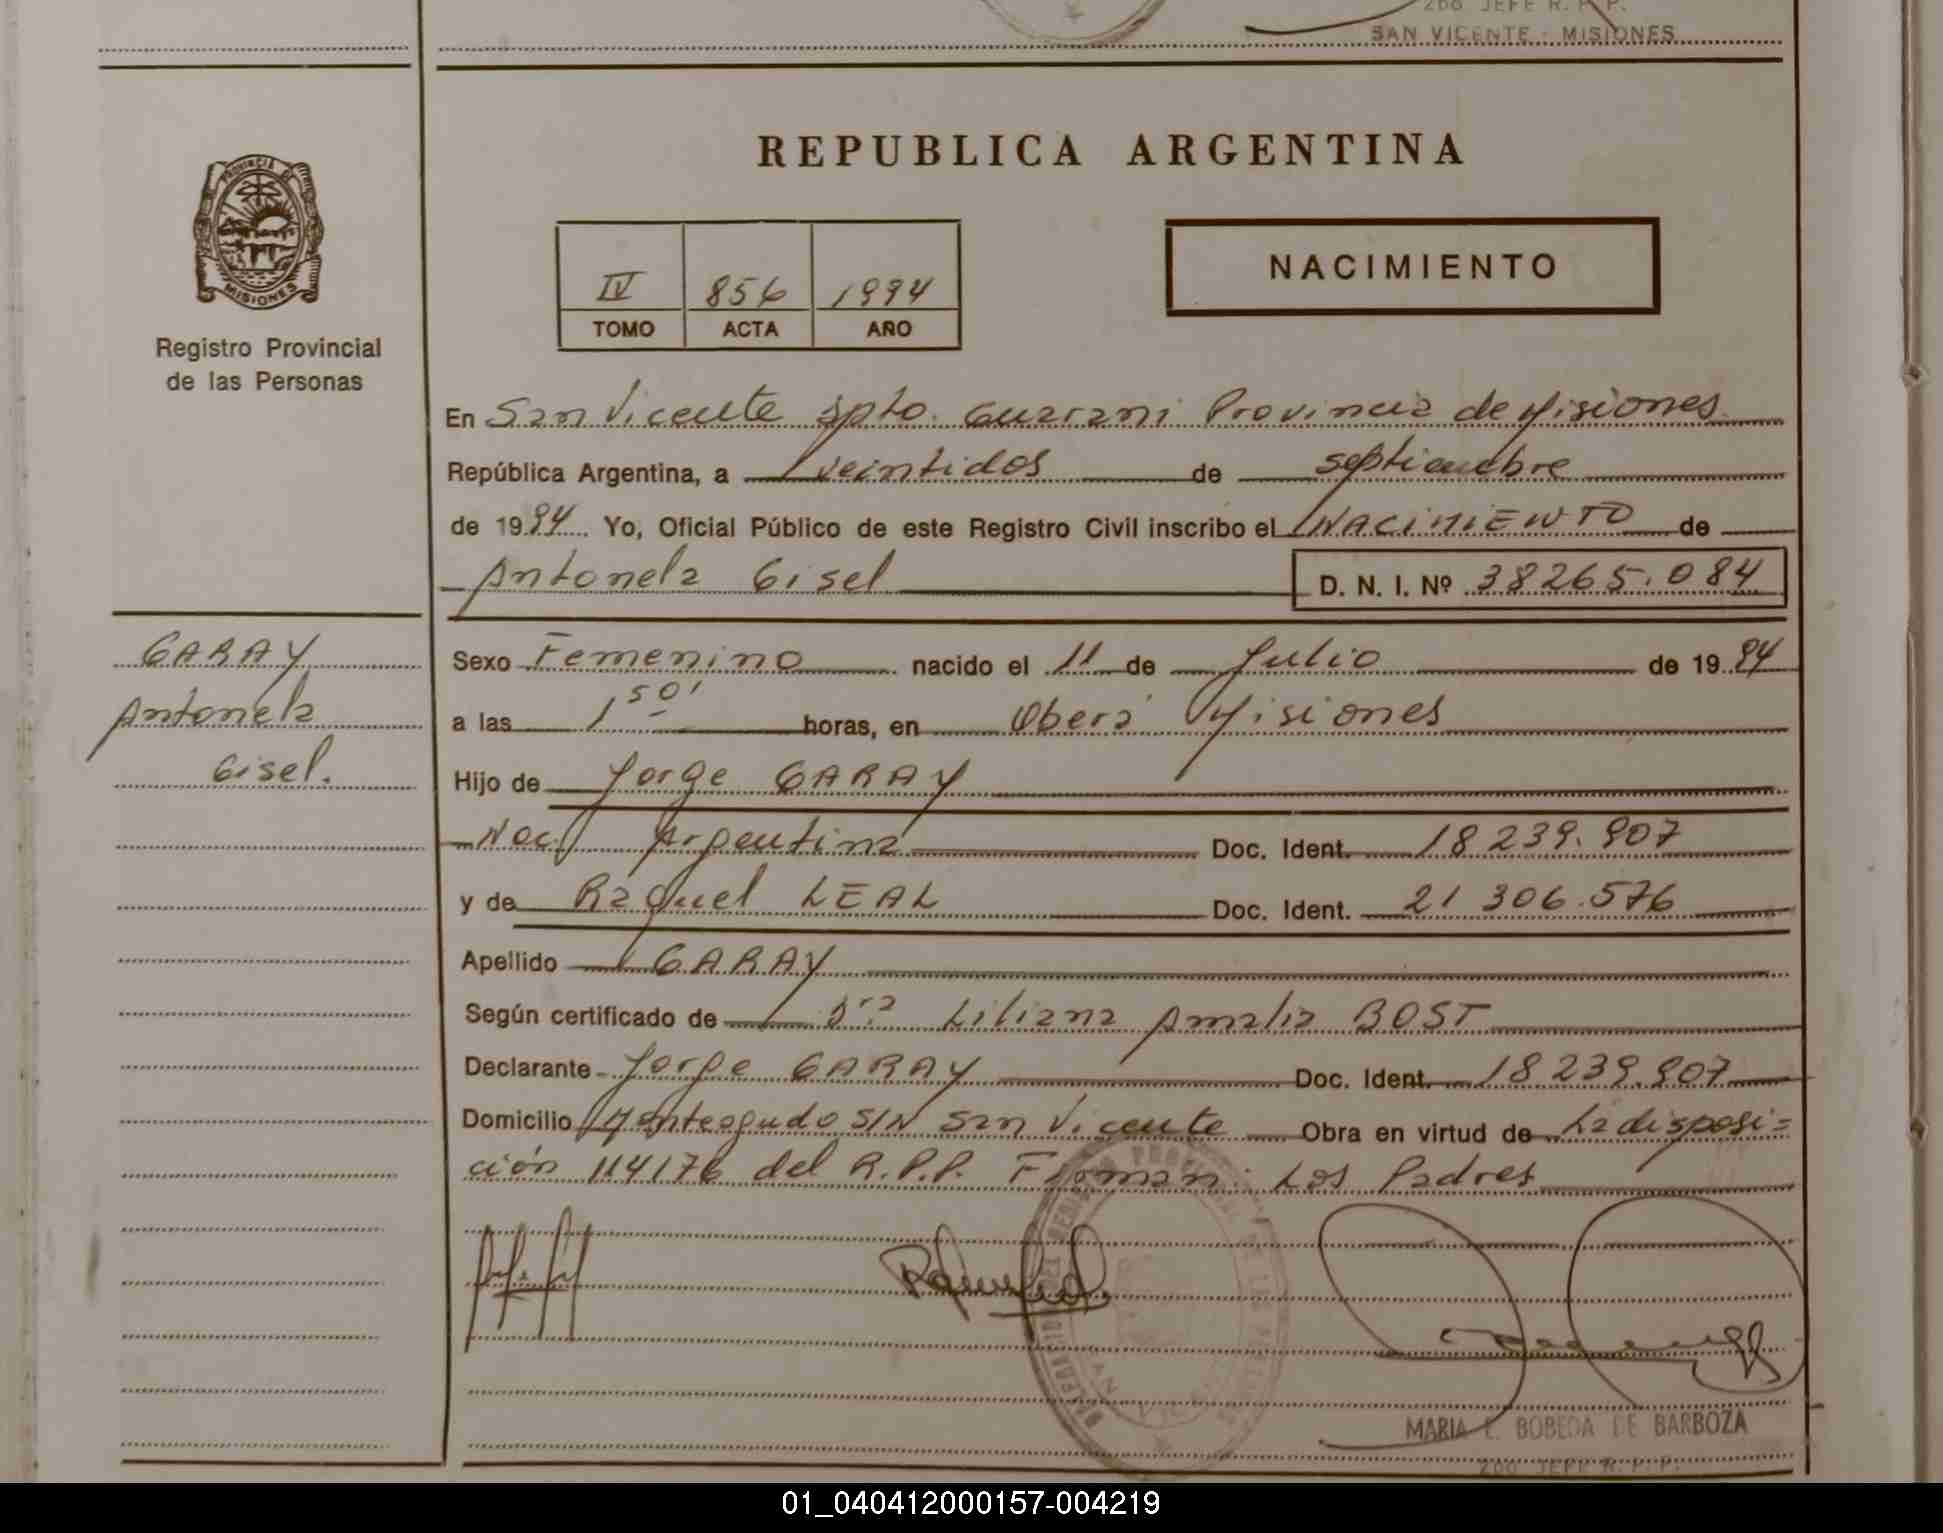 2do JEFE R. P. P.
SAN VICENTE - MISIONES
REPUBLICA ARGENTINA
PROVINCIA DE
MISIONES
Registro Provincial
de las Personas
IV 856 1994
TOMO ACTA AÑO
NACIMIENTO
En San Vicente Dpto. Guarani Provincia de Misiones
República Argentina, a veintidos de septiembre
de 1994 Yo, Oficial Público de este Registro Civil inscribo el NACIMIENTO de
Antonela Gisel D. N. I. Nº 38265.084
GARAY
Antonela
Gisel.
Sexo Femenino nacido el 11 de Julio de 1994
a las 1 50' horas, en Oberá Misiones
Hijo de Jorge GARAY
Nac. Argentina Doc. Ident. 18239.907
y de Raquel LEAL Doc. Ident. 21 306.576
Apellido GARAY
Según certificado de Dra Liliana Amalia BOST
Declarante Jorge GARAY Doc. Ident. 18239.907
Domicilio Monteagudo S/N San Vicente Obra en virtud de La disposi=
ción 114/76 del R.P.P. Firman: Los Padres
MARIA E. BOBEDA DE BARBOZA
2do JEFE R. P. P.
01_040412000157-004219